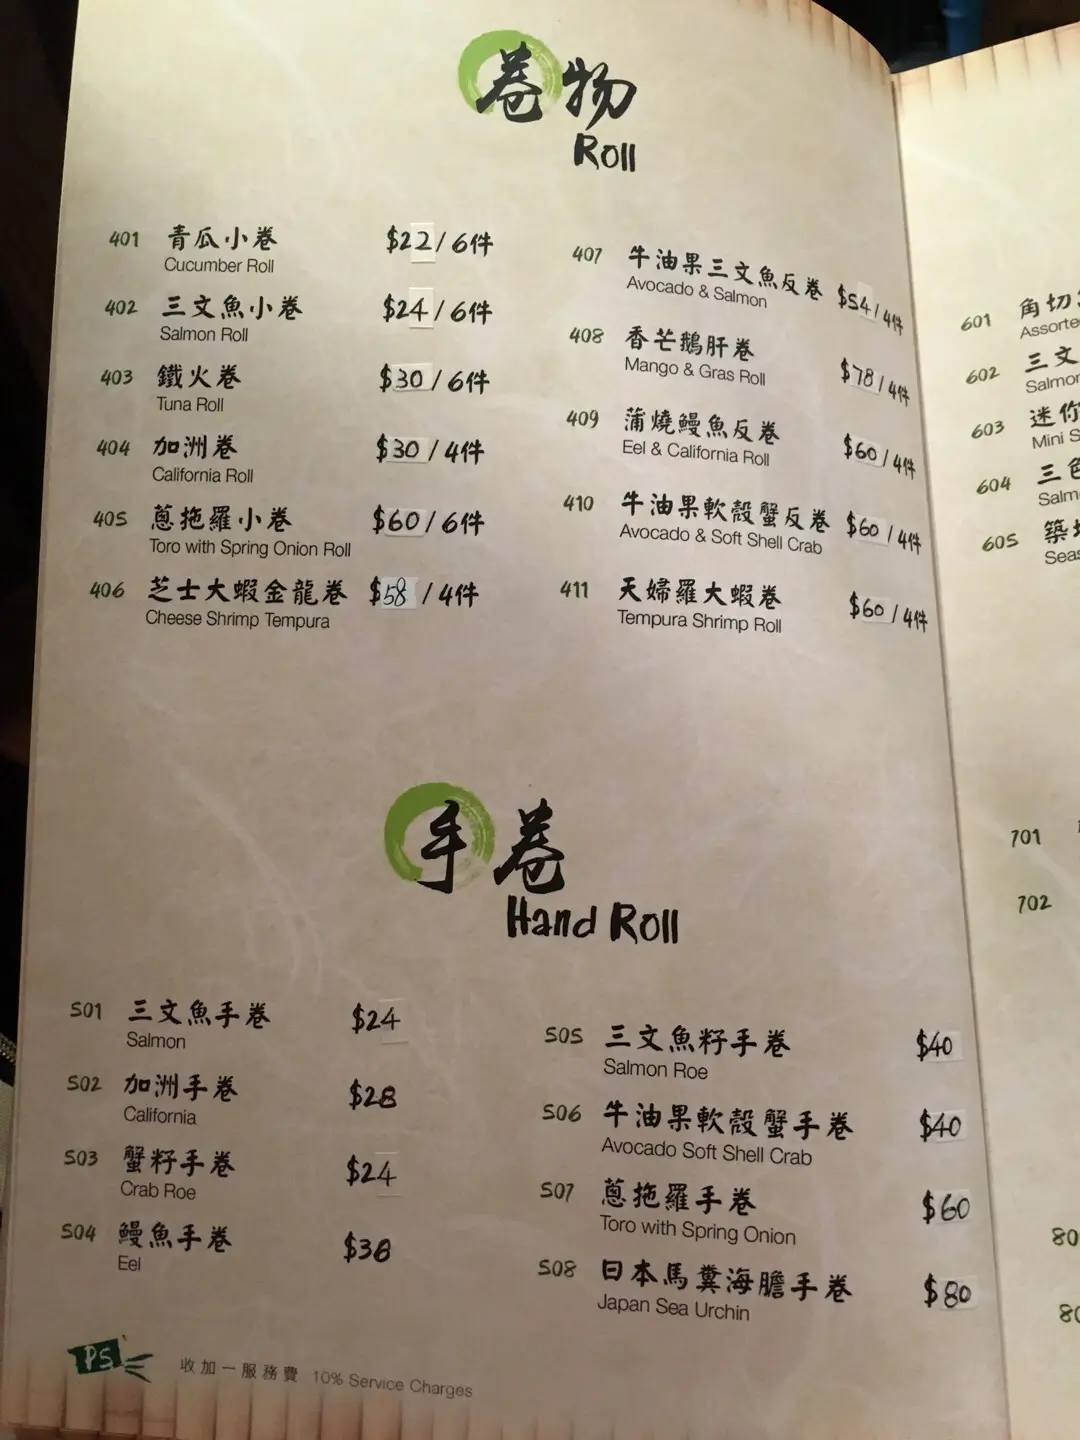 卷物
Roll
401 青瓜小卷 $22/6件
Cucumber Roll
402 三文魚小卷 $24/6件
Salmon Roll
403 鐵火卷 $30/6件
Tuna Roll
404 加洲卷 $30/4件
California Roll
405 蔥拖羅小卷 $60/6件
Toro with Spring Onion Roll
406 芝士大蝦金龍卷 $58/4件
Cheese Shrimp Tempura
407 牛油果三文魚反卷 $54/4件
Avocado & Salmon
408 香芒鵝肝卷 $78/4件
Mango & Gras Roll
409 蒲燒鰻魚反卷 $60/4件
Eel & California Roll
410 牛油果軟殼蟹反卷 $60/4件
Avocado & Soft Shell Crab
411 天婦羅大蝦卷 $60/4件
Tempura Shrimp Roll
手卷
Hand Roll
501 三文魚手卷 $24
Salmon
502 加洲手卷 $28
California
503 蟹籽手卷 $24
Crab Roe
504 鰻魚手卷 $38
Eel
505 三文魚籽手卷 $40
Salmon Roe
506 牛油果軟殼蟹手卷 $40
Avocado Soft Shell Crab
507 蔥拖羅手卷 $60
Toro with Spring Onion
508 日本馬糞海膽手卷 $80
Japan Sea Urchin
PS 收加一服務費 10% Service Charges
601 角切
602 三文
Salmon
603 迷你
Mini
604 三色
605
701
702